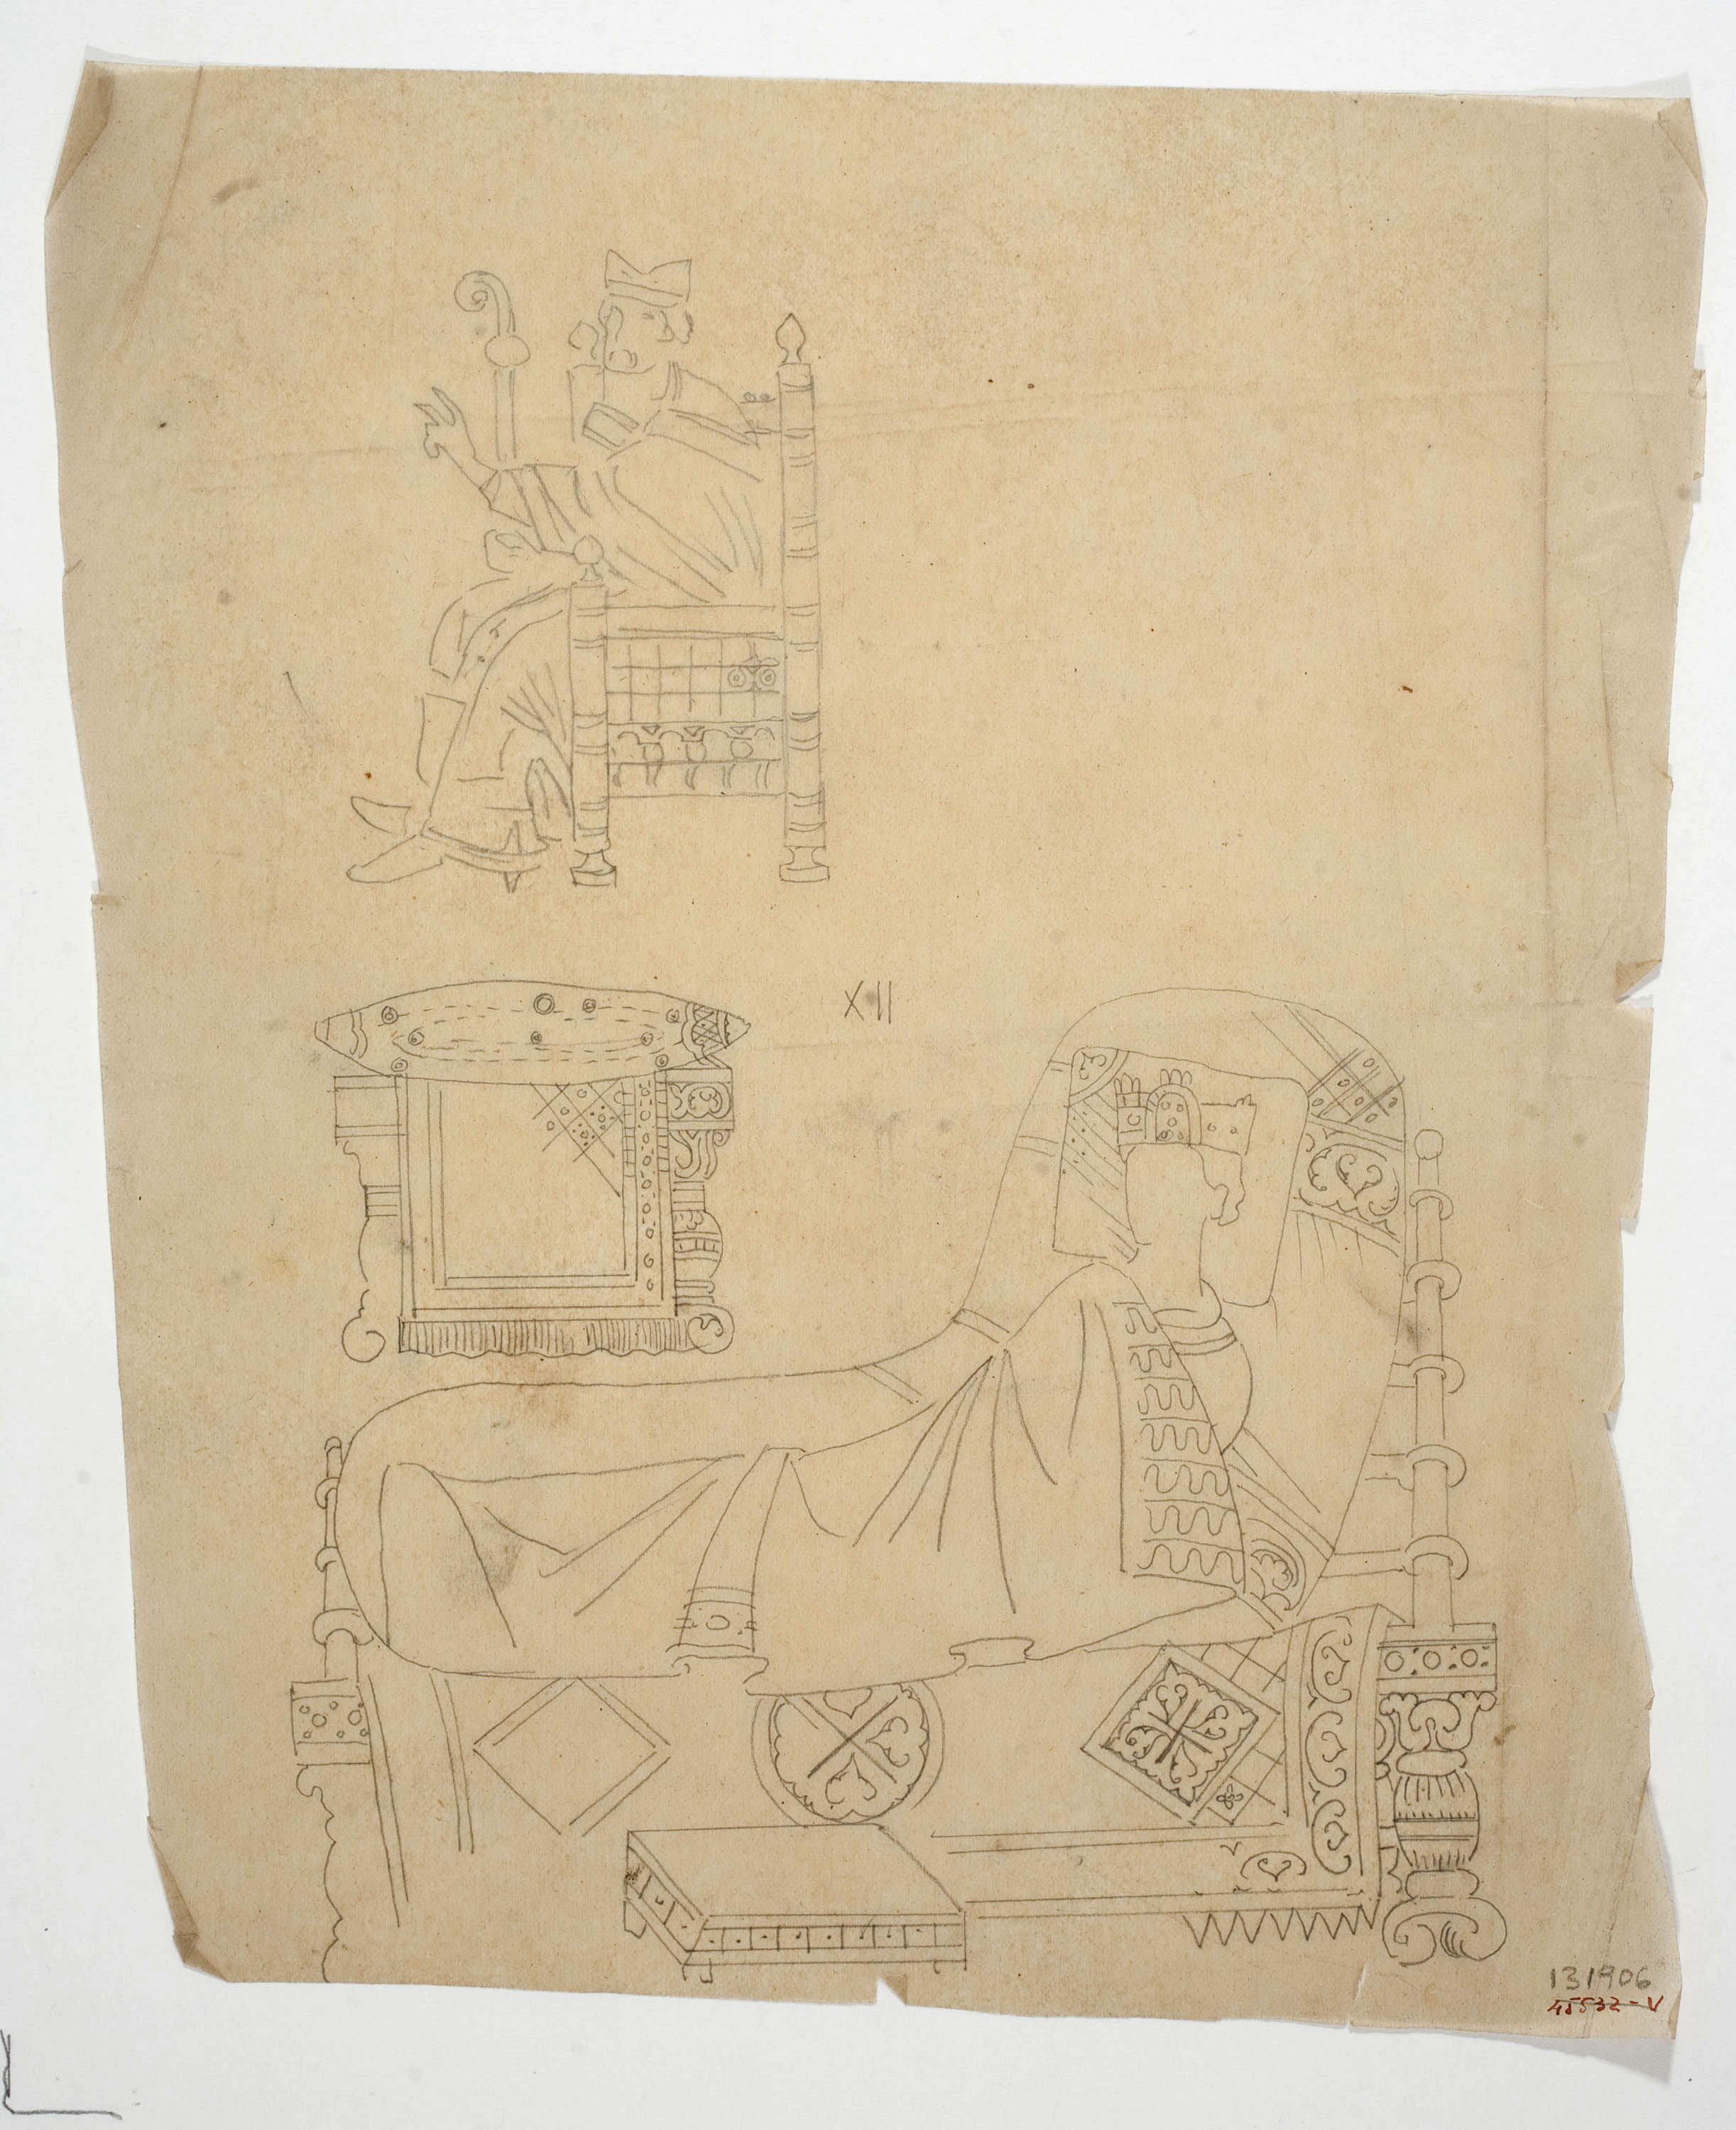 XII
131906
45532-V